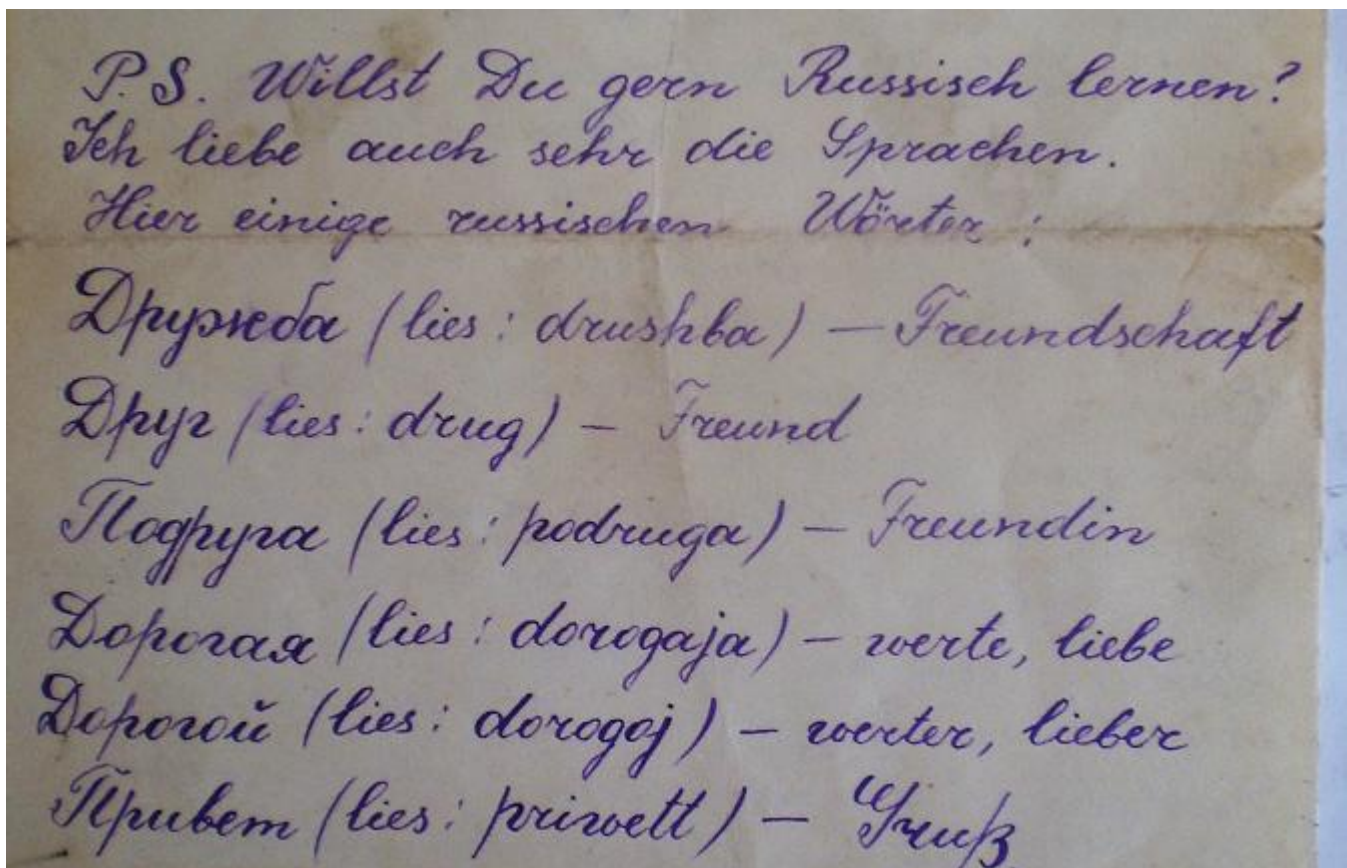 P.S. Willst Du gern Russisch lernen?
Ich liebe auch sehr die Sprachen.
Hier einige russischen Wörter:
Дружба (lies: drushba) — Freundschaft
Друг (lies: drug) — Freund
Подруга (lies: podruga) — Freundin
Дорогая (lies: dorogaja) — werte, liebe
Дорогой (lies: dorogoj) — werter, lieber
Привет (lies: priwett) — Gruß